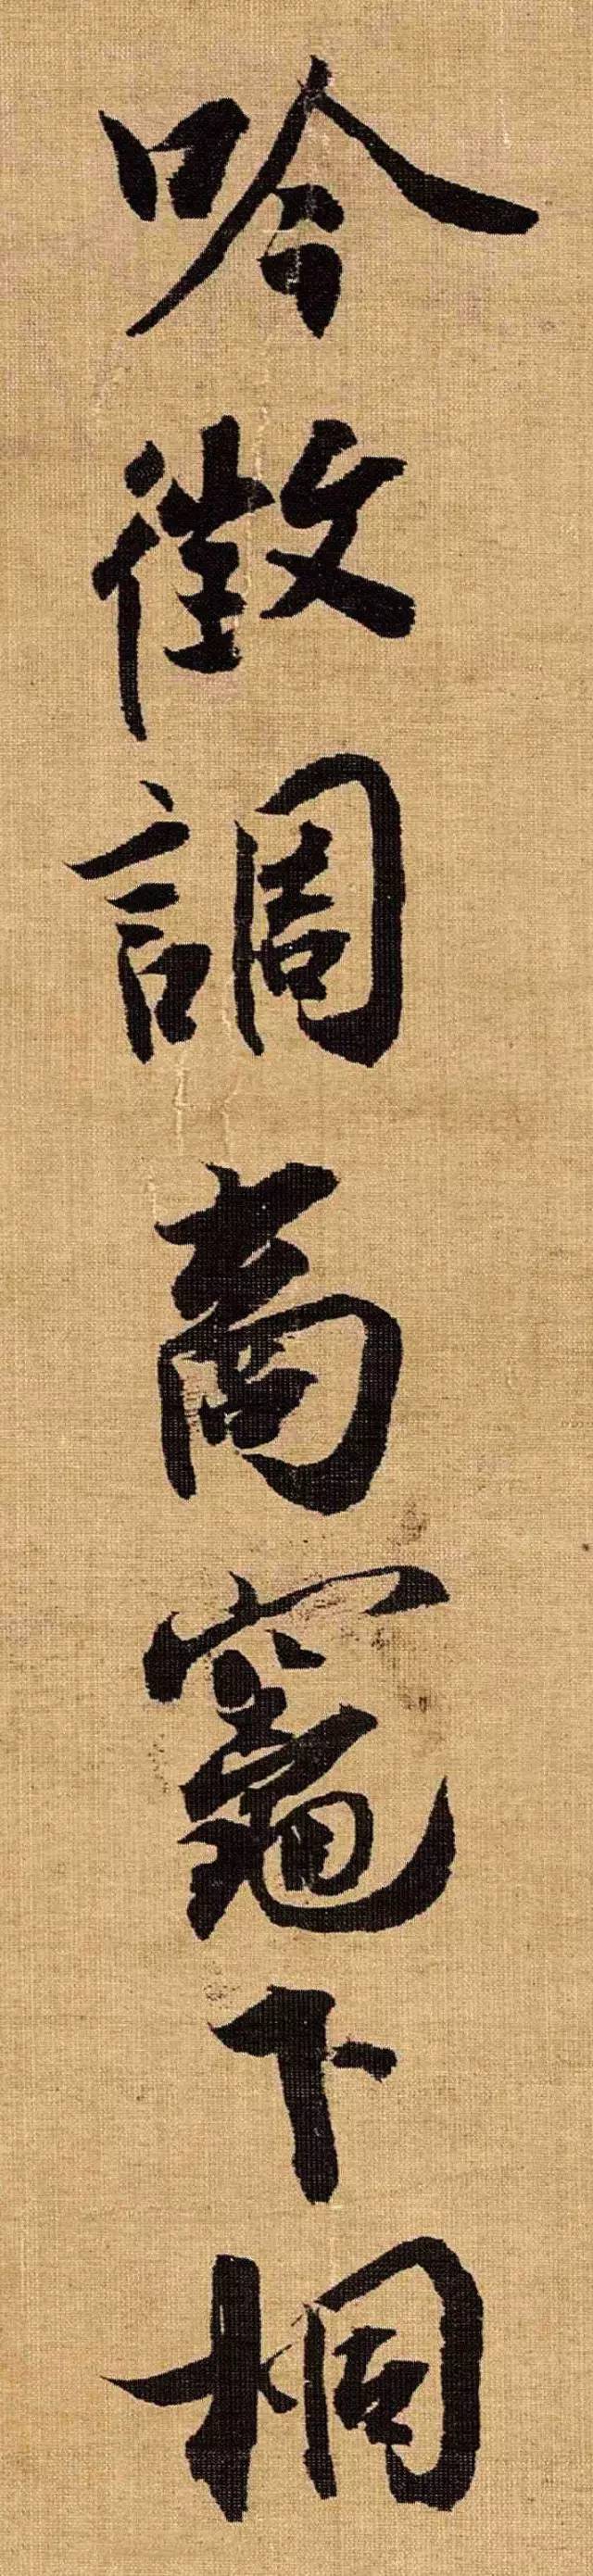 吟徵調商竈下桐